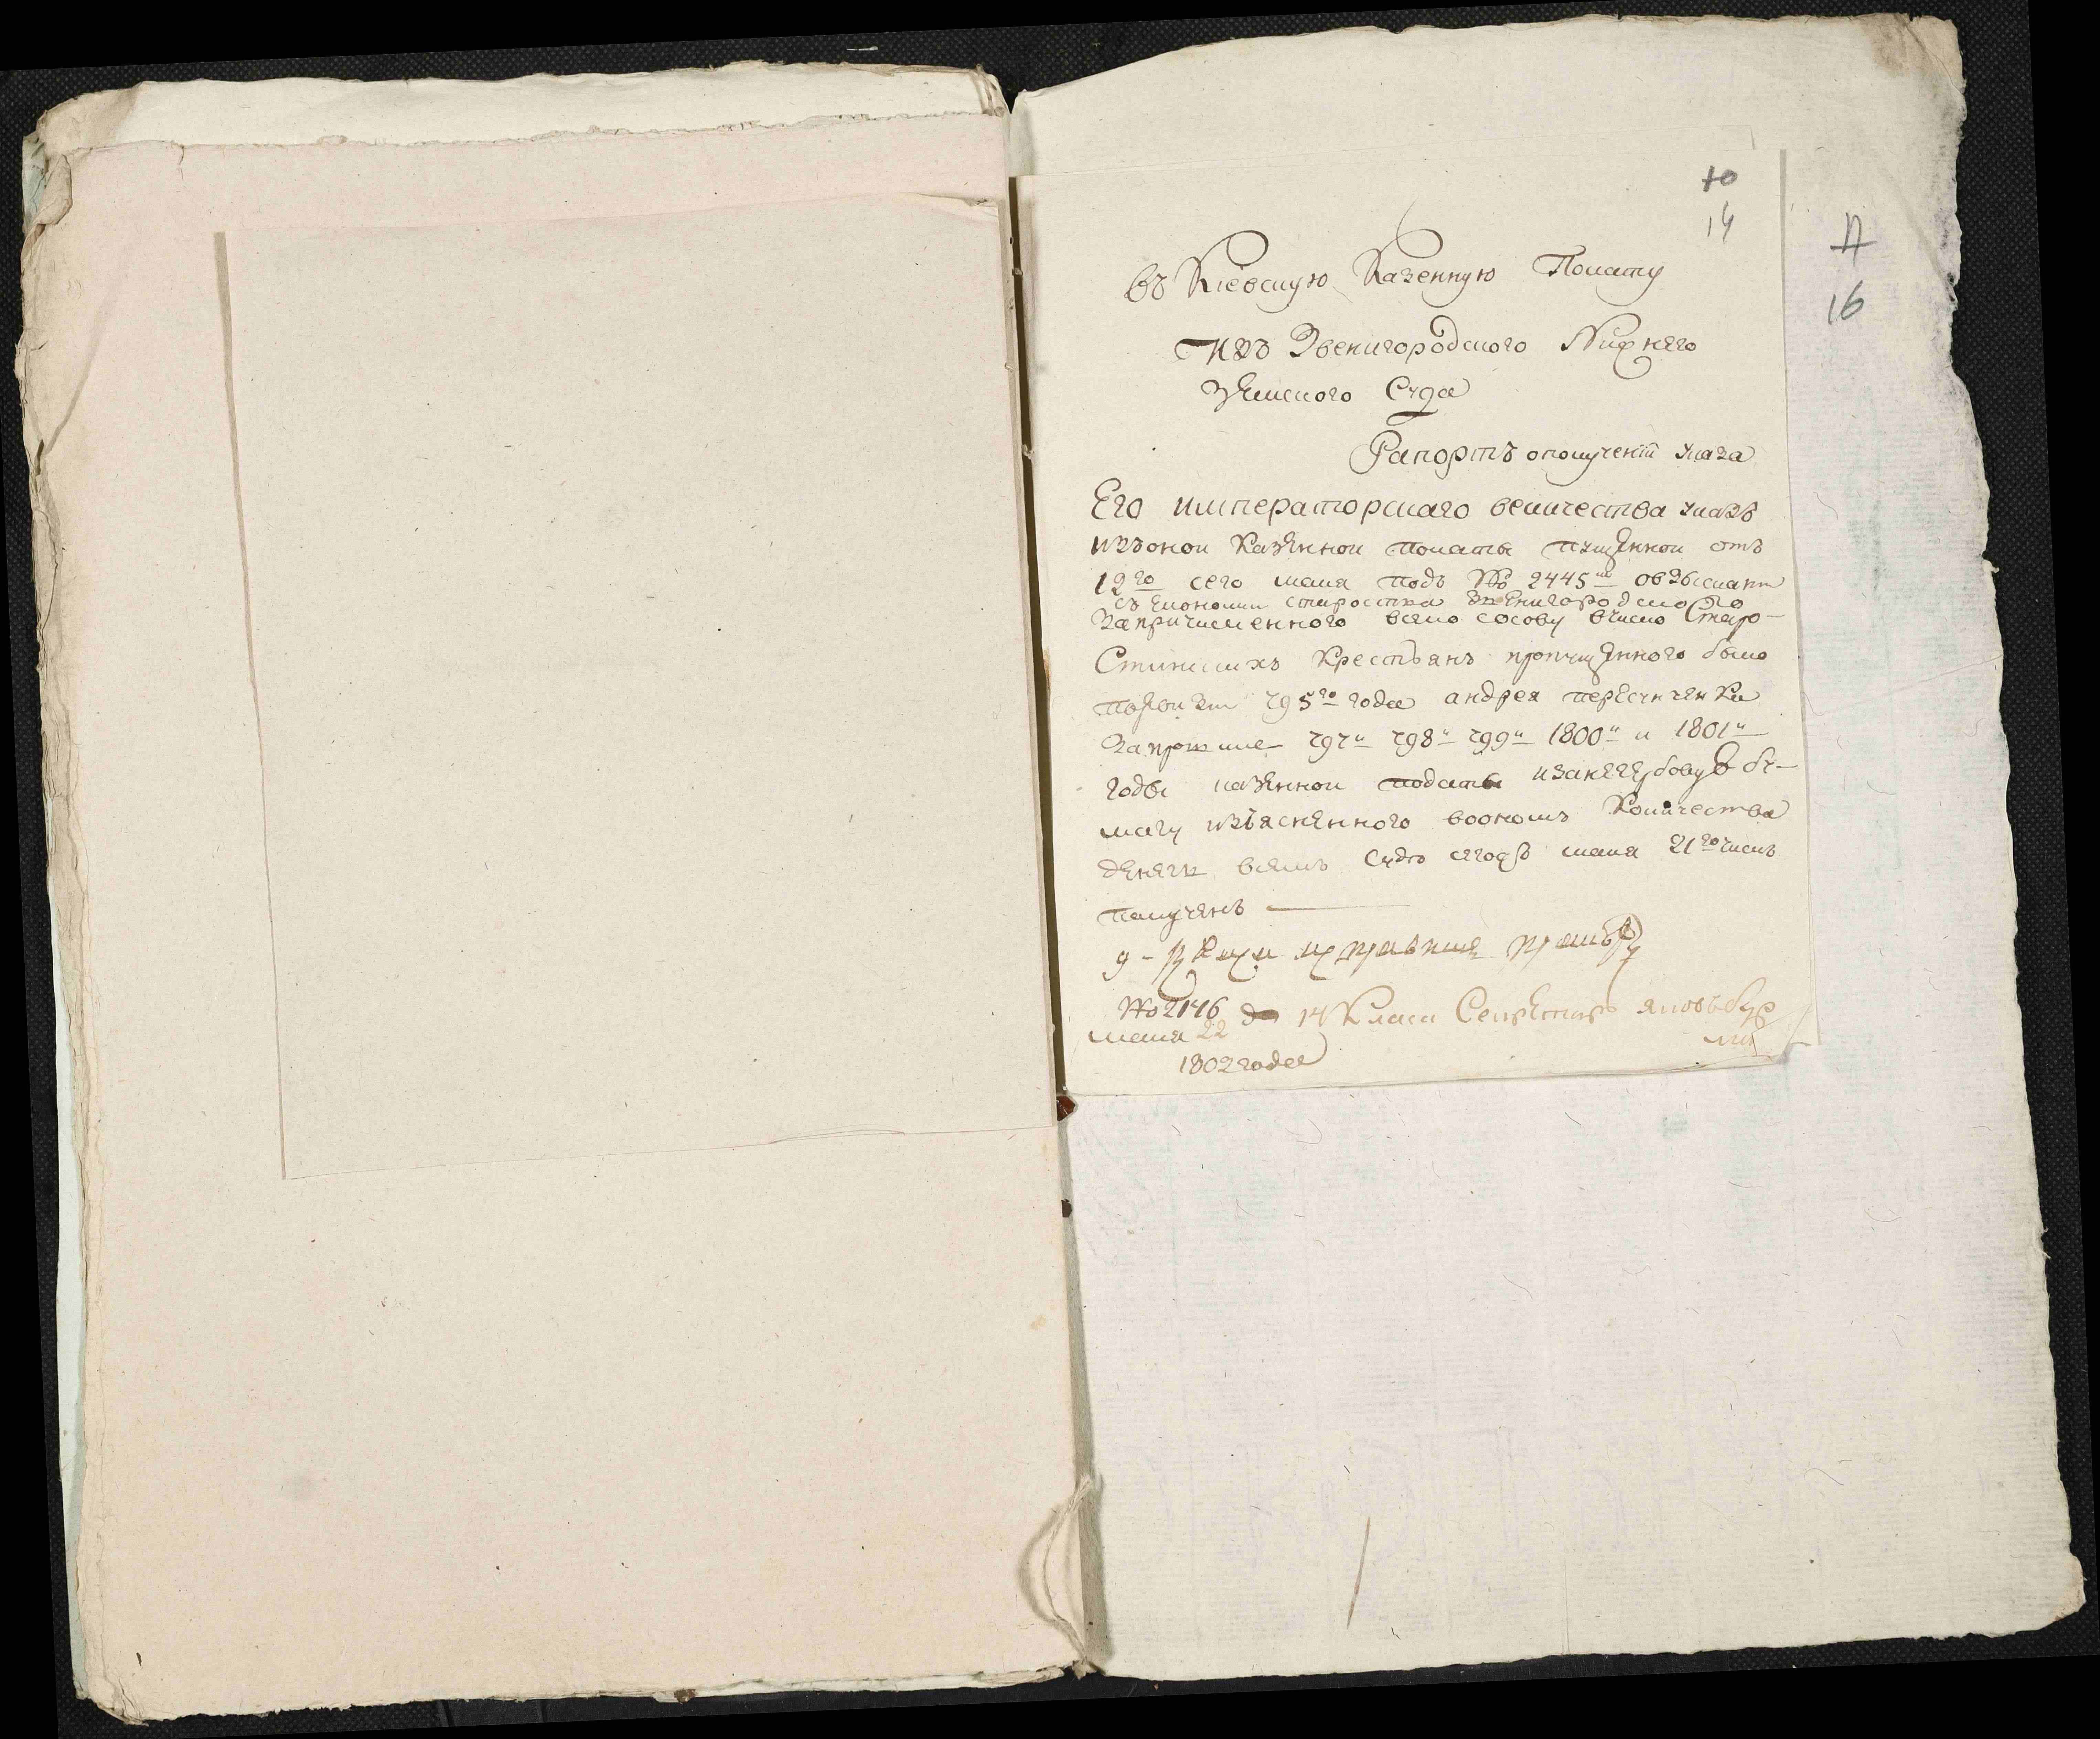 10
14
17
16
въ Кіевскую Казенную Полату
изъ Звенигородского Нижнего
земского Суда
Рапортъ о получении указа
Его императорскаго величества указъ
изъ оной казенной полаты пущенной отъ
12го сего маия подъ № 2445м о взыскании
съ економии староства Звенигородского
за причисленного въ село сосову в число старо-
стинскихъ крестьянъ пропущенного было
по ревизии 795го года андрея пересунченка
за прошлые 797й 798й 799й 1800й и 1801й
годы казенной подати и за гербовую бу-
магу изъясненного во ономъ количества
денегъ въ семъ суде сего маия 21го числъ
полученъ
№ 2146
14 класа Секретарь яковъ
маия 22
1802 года